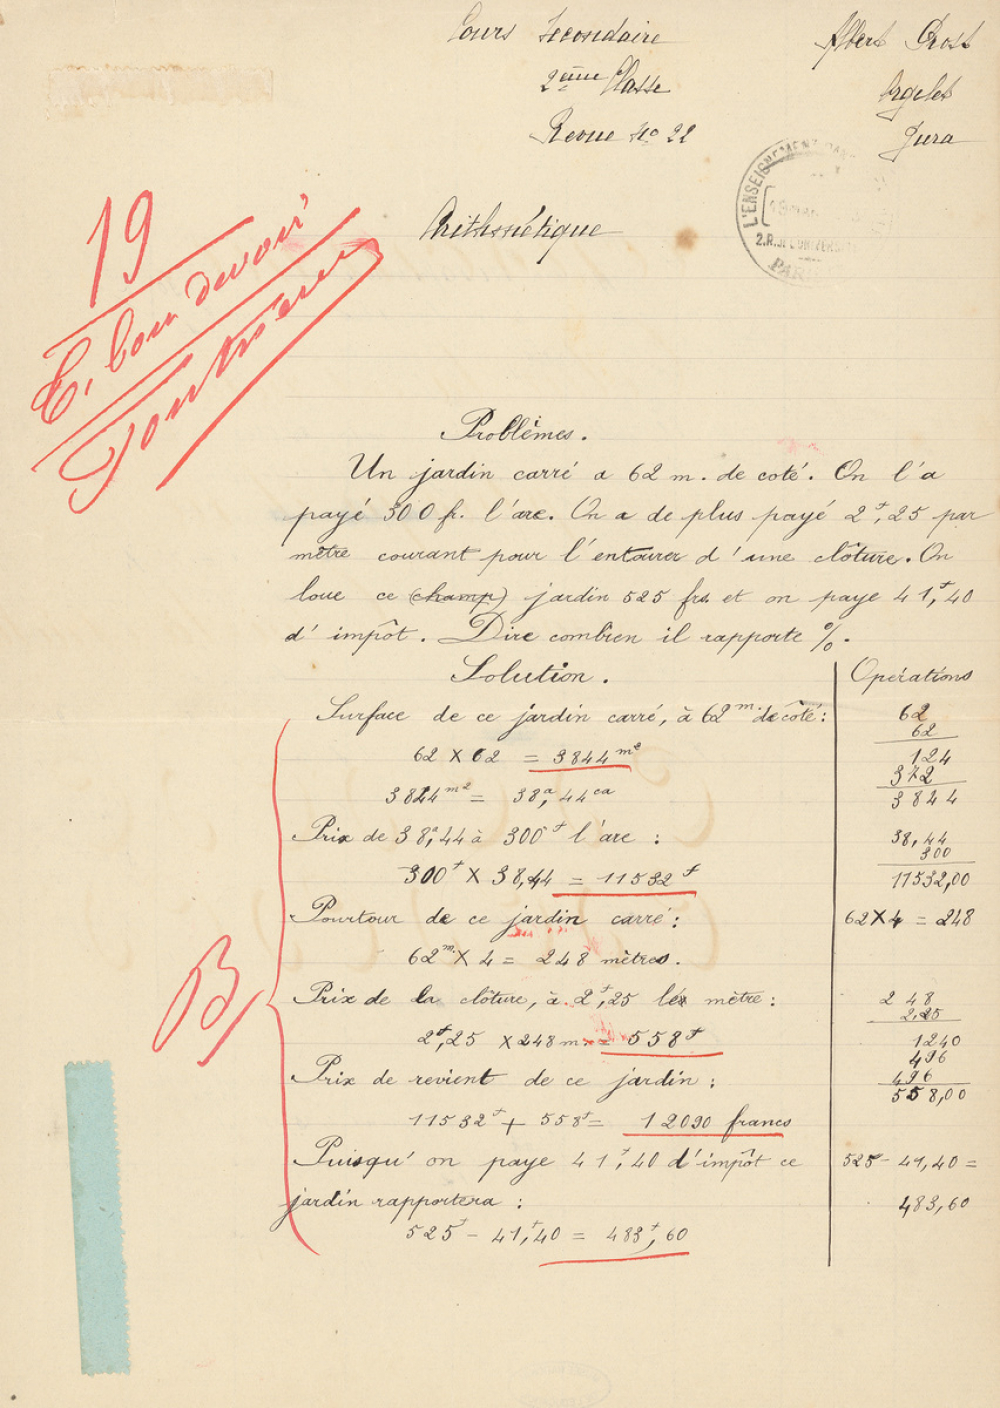 Cours Secondaire
2ème Classe
Revue No 22
Albert Prost
Orgelet
Jura
L'ENSEIGNEMENT
2.R.
PARIS
Arithmétique
19
T. bon devoir
Problèmes.
Un jardin carré a 62 m. de coté. On l'a
payé 300 fr. l'are. On a de plus payé 2f,25 par
mètre courant pour l'entourer d'une clôture. On
loue ce (champ) jardin 525 frs. et on paye 41f,40
d'impôt. Dire combien il rapporte %.
Solution.
Surface de ce jardin carré, à 62m. de côté:
62 X 62 = 3844m²
3844m2 = 38a,44ca
Prix de 38a,44 à 300f l'are :
300f X 38,44 = 11532f
Pourtour de ce jardin carré :
62m. X 4 = 248 mètres.
Prix de la clôture, à 2f,25 le mètre :
2f,25 X 248 m. = 558f
Prix de revient de ce jardin :
11532f + 558f = 12090 francs
Puisqu'on paye 41f,40 d'impôt ce
jardin rapportera :
525f - 41f,40 = 483f,60
B
Opérations
62
62
124
372
3844
38,44
300
11532,00
62X4 = 248
248
2,25
1240
496
496
558,00
525 - 41,40 =
483,60